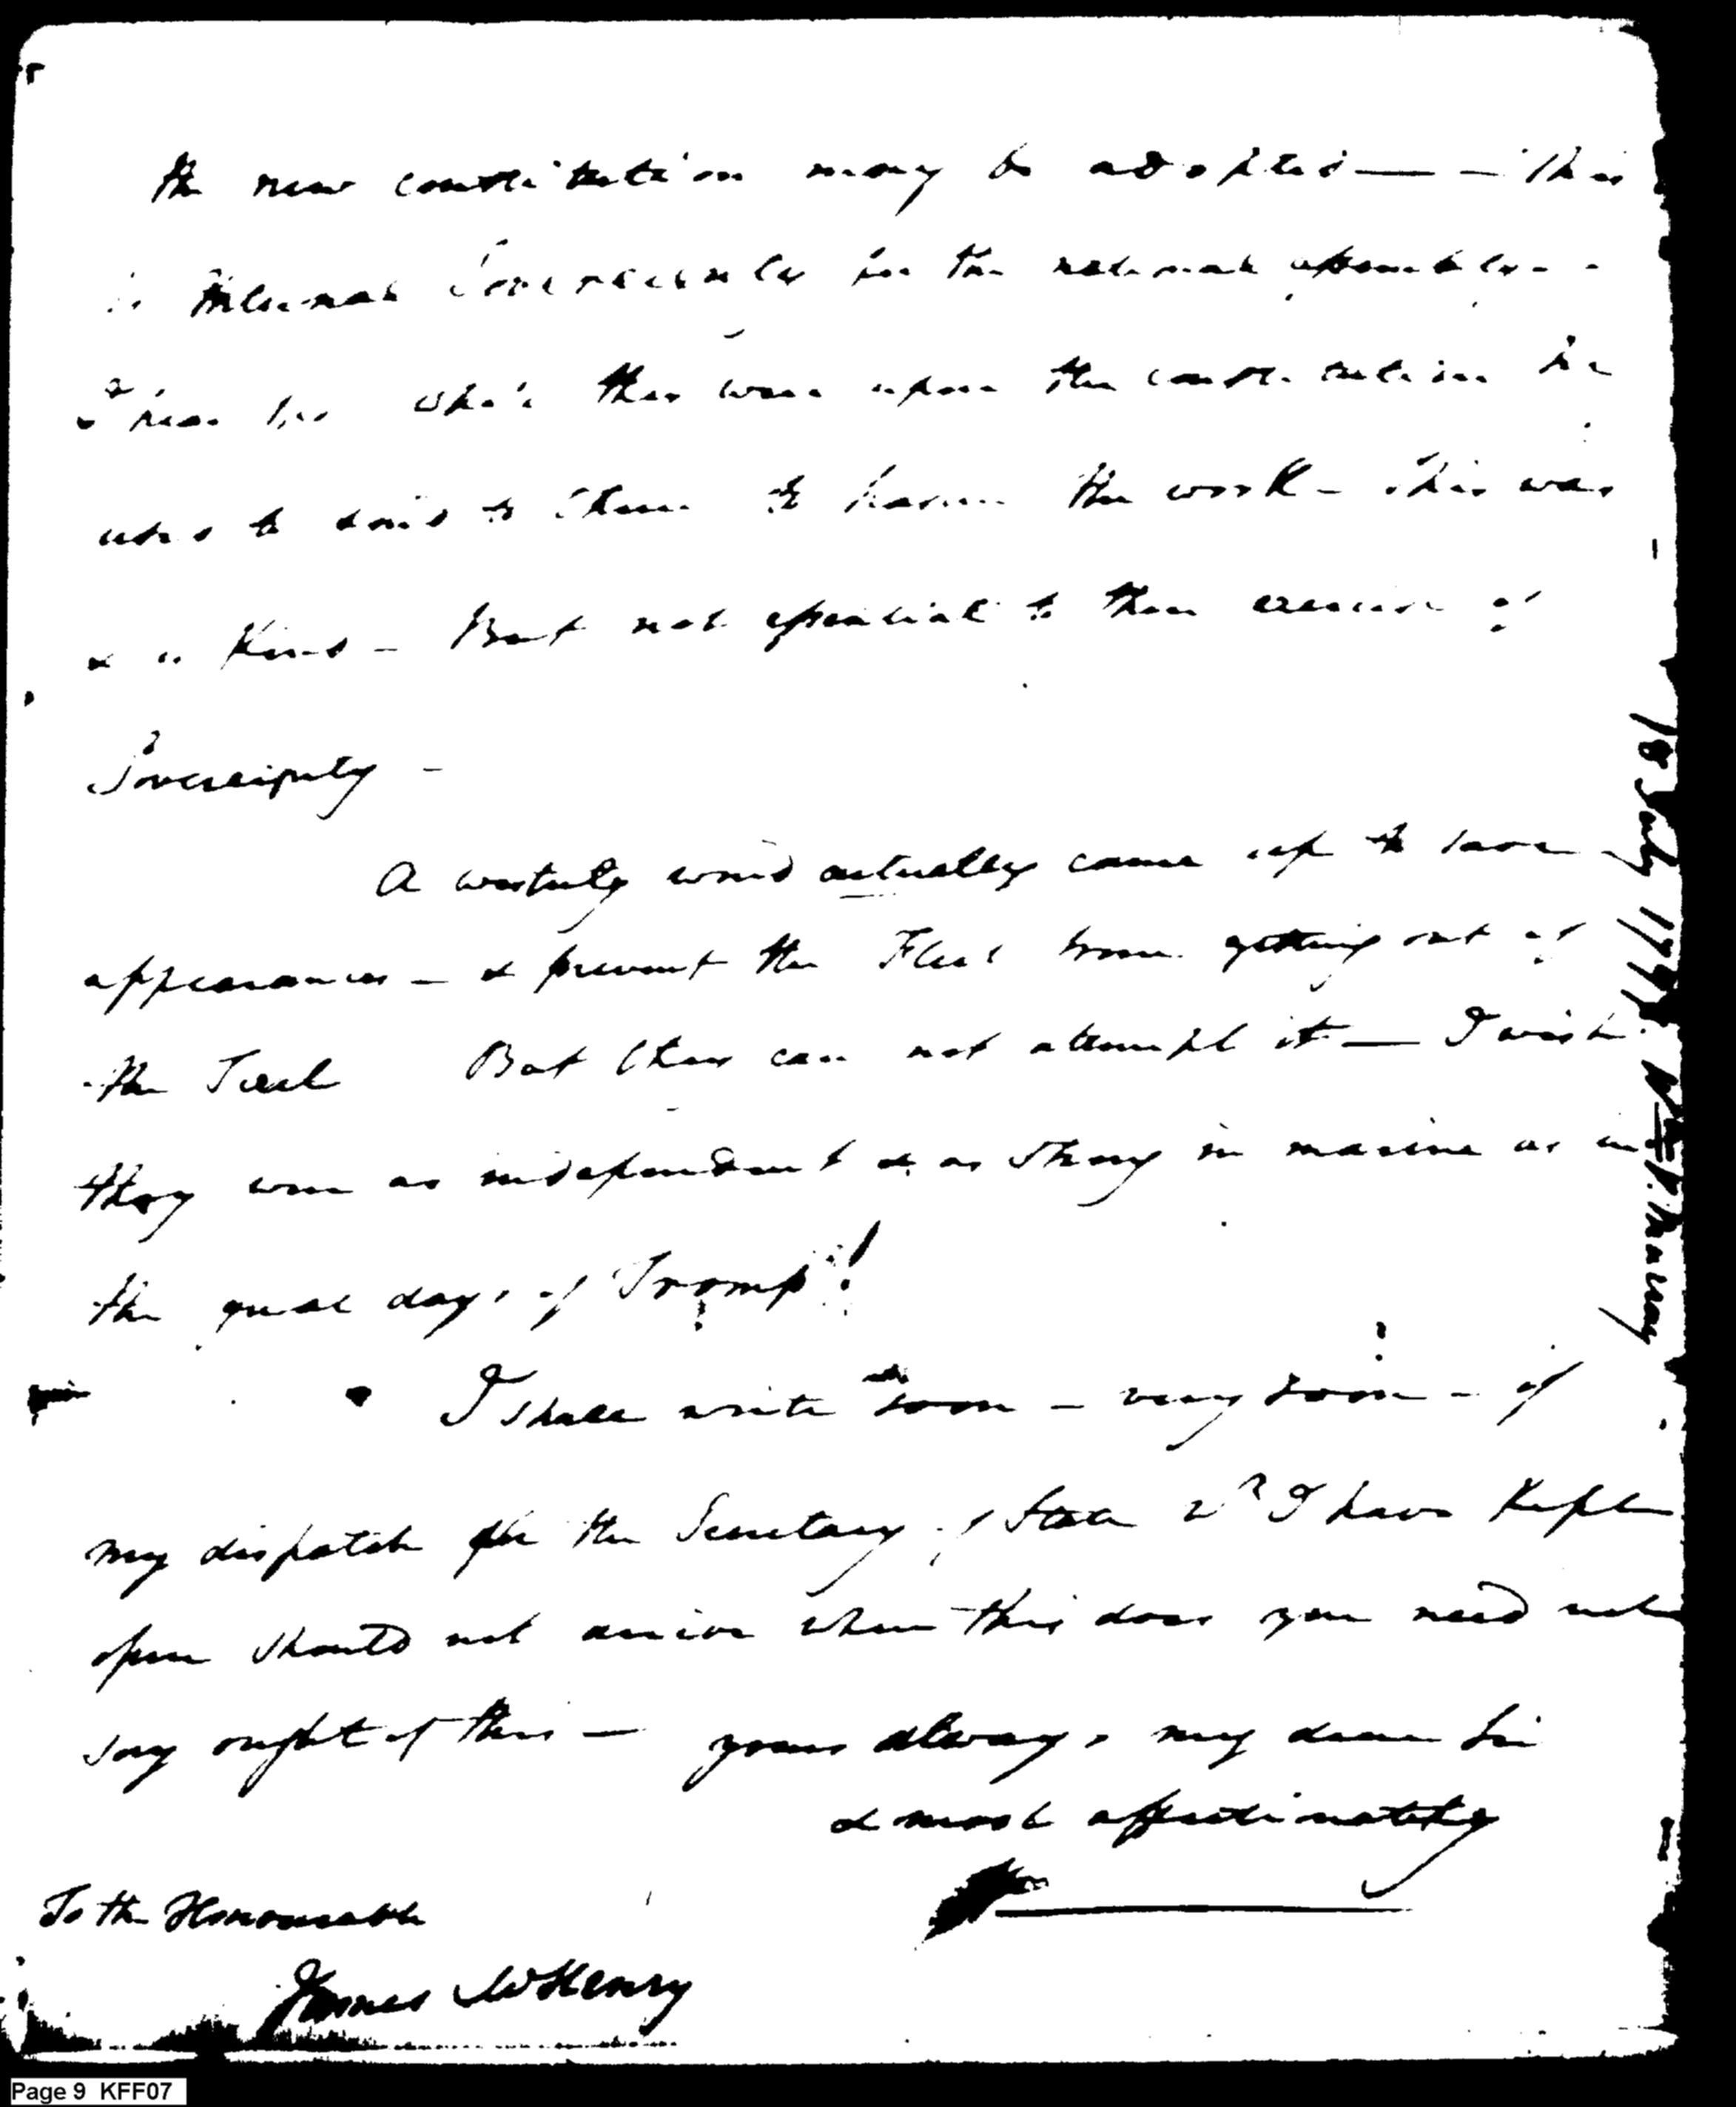 the new constitution may be adopted — – This
is internal Sovereignty for the national assembly – –
upon the constitution
to them to the work – This was
Kind – But not essential to the exercise of
Sovereignty –
A westerly wind actually came up to save
appearances – & prevent the Fleet from getting out of
the Texel But they can not attempt it — I wish
they were as independent & as strong in marine as in
the great days of Tromp!
I shall write soon – very soon – if
my dispatch for the Secretary of State wh I have kept
open should not arrive when this does you need not
say ought of this — yours always, my dear Sir
& most affectionately
To the Honourable
James McHenry
July 1797
Page 9 KFF07